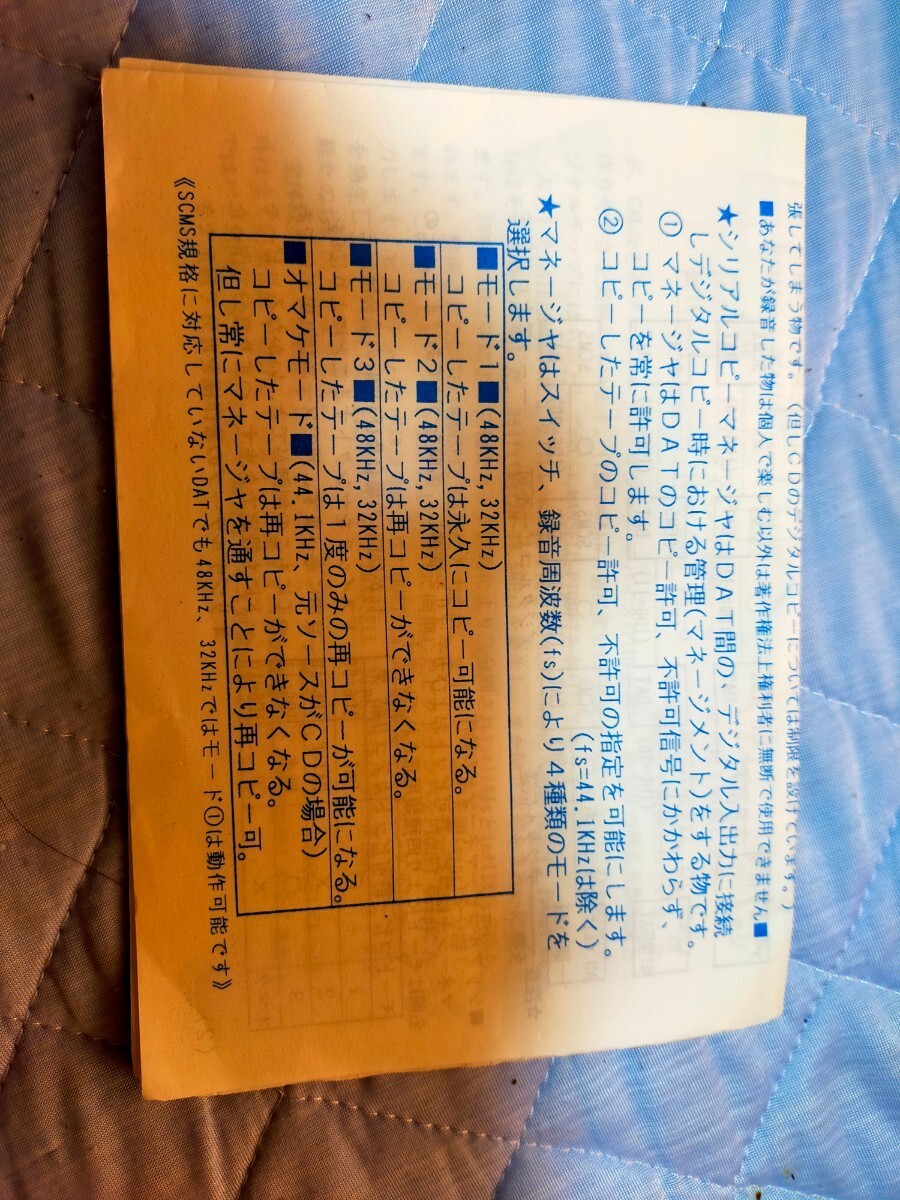 張してしまう物です。（但しＣＤのデジタルコピーについては制限を設けています。）
■あなたが録音した物は個人で楽しむ以外は著作権法上権利者に無断で使用できません■
★シリアルコピーマネージャはＤＡＴ間の、デジタル入出力に接続
しデジタルコピー時における管理(マネージメント)をする物です。
① マネージャはＤＡＴのコピー許可、不許可信号にかかわらず、
コピーを常に許可します。
② コピーしたテープのコピー許可、不許可の指定を可能にします。
(fs=44.1KHzは除く)
★マネージャはスイッチ、録音周波数(fs)により４種類のモードを
選択します。
■モード１■(48KHz,32KHz)
コピーしたテープは永久にコピー可能になる。
■モード２■(48KHz,32KHz)
コピーしたテープは再コピーができなくなる。
■モード３■(48KHz,32KHz)
コピーしたテープは１度のみの再コピーが可能になる。
■オマケモード■(44.1KHz、元ソースがＣＤの場合)
コピーしたテープは再コピーができなくなる。
但し常にマネージャを通すことにより再コピー可。
《SCMS規格に対応していないDATでも48KHz、32KHzではモード①は動作可能です》